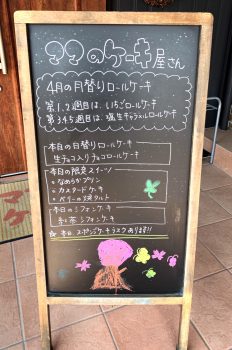 ママのケーキ屋さん
4月の月替りロールケーキ
第1.2週目は、いちごロールケーキ
第3.4.5週目は、塩生キャラメルロールケーキ
本日の日替りロールケーキ
生チョコ入りチョコロールケーキ
本日の限定スイーツ
・なめらかプリン
・カスタードケーキ
・ベリーの焼タルト
本日のシフォンケーキ
紅茶シフォンケーキ
本日、スポンジケーキラスクあります!!